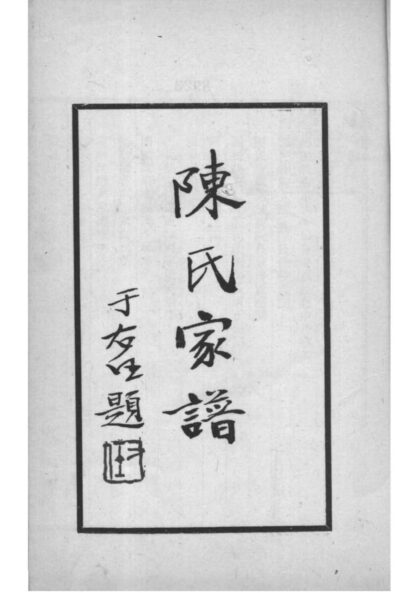 陳氏家譜
于右任題